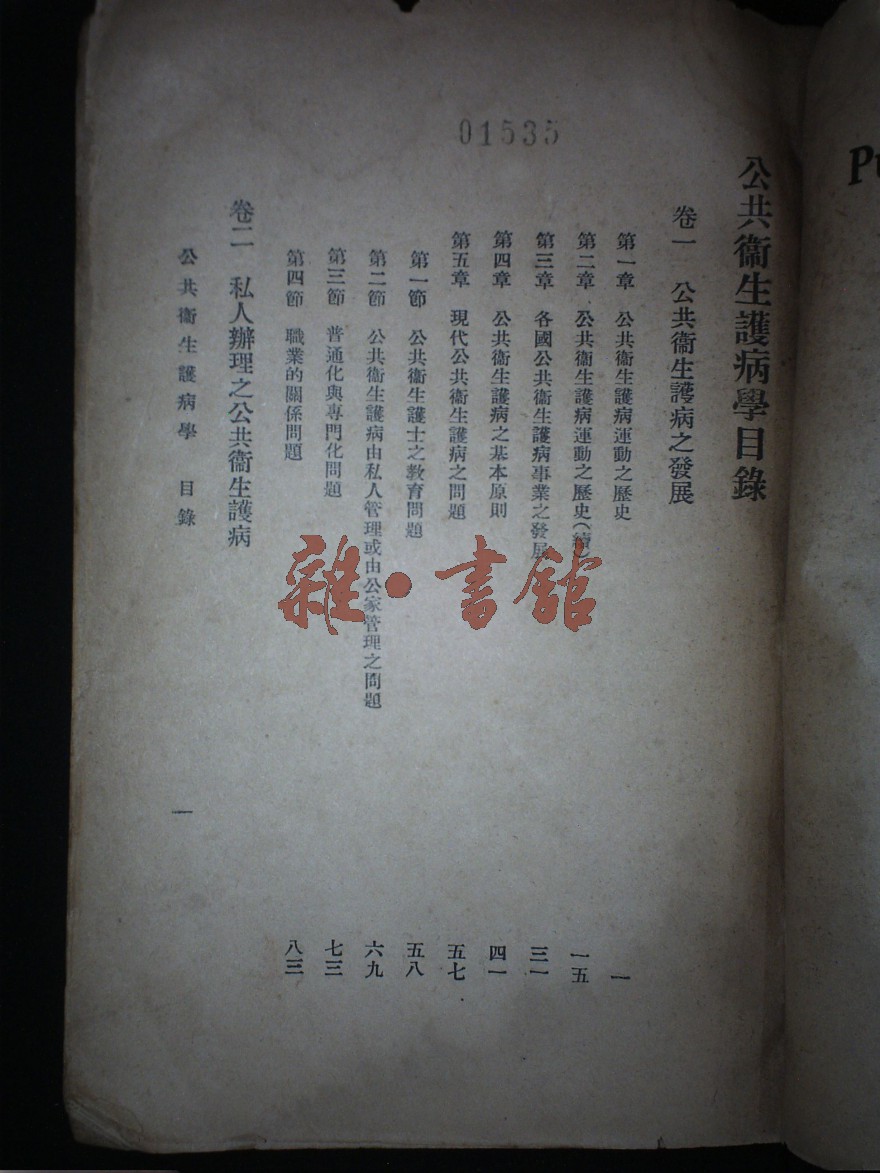 01535
公共衞生護病學目錄
卷一 公共衞生護病之發展
第一章 公共衞生護病運動之歷史 一
第二章 公共衞生護病運動之歷史(續) 一五
第三章 各國公共衞生護病事業之發展 三一
第四章 公共衞生護病之基本原則 四一
第五章 現代公共衞生護病之問題 五七
第一節 公共衞生護士之教育問題 五八
第二節 公共衞生護病由私人管理或由公家管理之問題 六九
第三節 普通化與專門化問題 七三
第四節 職業的關係問題 八三
卷二 私人辦理之公共衞生護病
公共衞生護病學 目錄 一
雜·書館